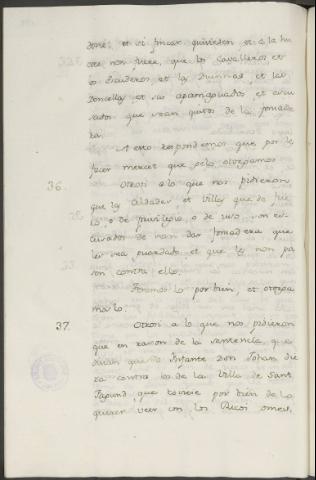 et si fincar quisieren et a la hu
que los Cavalleros et
los Escuderos et las Duennas, et las
Doncellas et sus apaniguados et escu
sados que sean quitos de la fonsade
ra.
A esto respondemos que por les
facer merced que gelo otorgamos
36. Otrosi a lo que nos pidieron
que las Aldeas et Villas que de fue
ro, o de privilegio, o de uso, son es
cusados de non dar fonsadera que
les sea guardado et que les non pa
sen contra ello.
Tenemos lo por bien, et otorga
moslo.
37. Otrosi a lo que nos pidieron
que en razon de la sentencia, que
que el Infante Don Johan die
ra contra los de la Villa de Sant
Fagund, que toviese por bien de lo
querer veer con los Ricos omes,